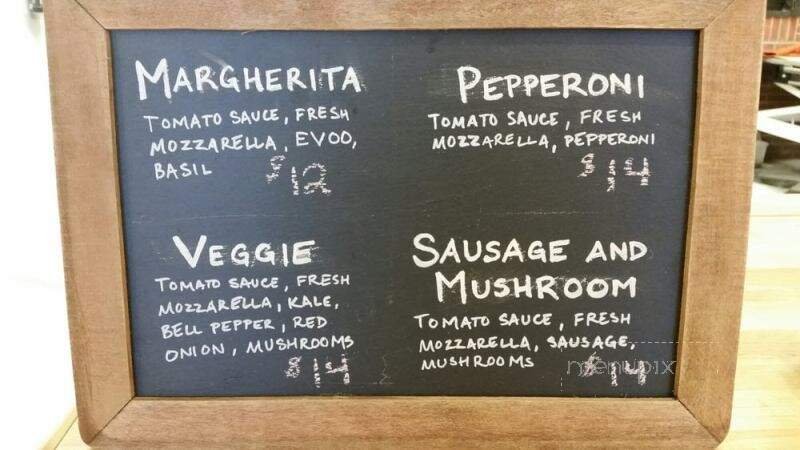 MARGHERITA
TOMATO SAUCE, FRESH
MOZZARELLA, EVOO,
BASIL
$12
PEPPERONI
TOMATO SAUCE, FRESH
MOZZARELLA, PEPPERONI
$14
VEGGIE
TOMATO SAUCE, FRESH
MOZZARELLA, KALE,
BELL PEPPER, RED
ONION, MUSHROOMS
$14
SAUSAGE AND
MUSHROOM
TOMATO SAUCE, FRESH
MOZZARELLA, SAUSAGE,
MUSHROOMS
$14
menupix